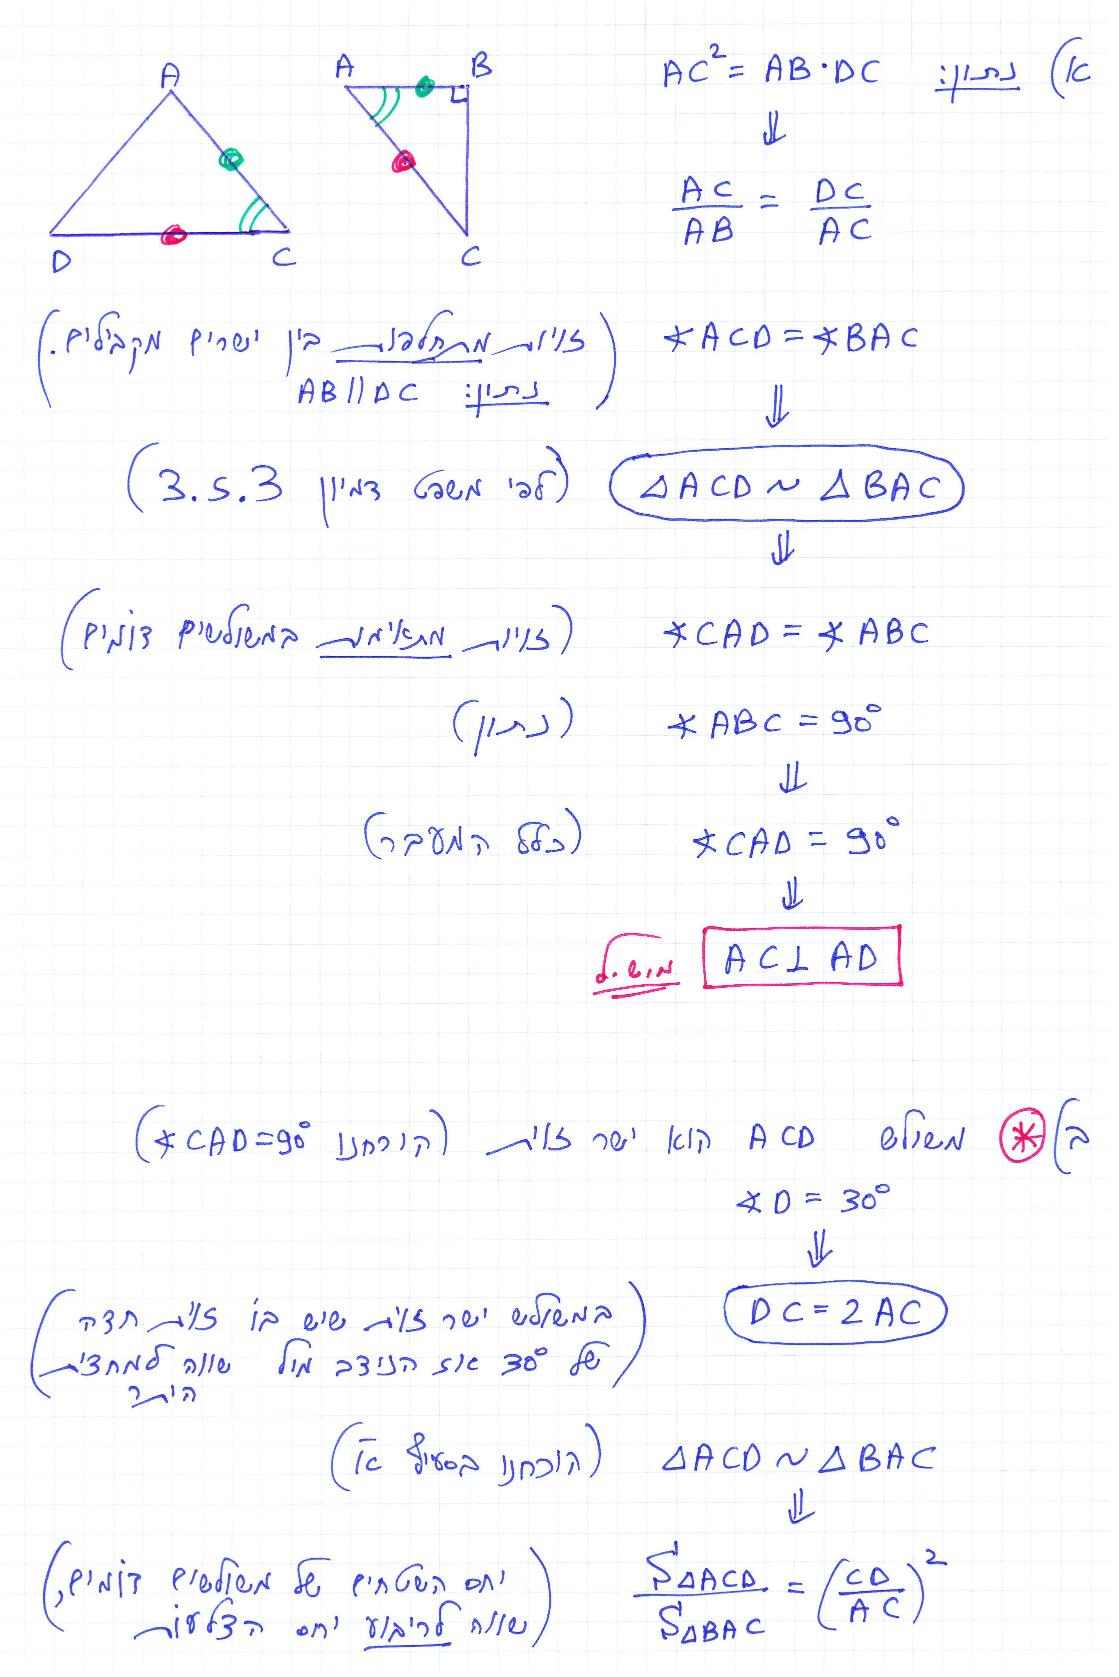 א) נתון: AC² = AB·DC
⇓
AC/AB = DC/AC
A
D
C
A
B
C
∢ACD = ∢BAC (זויות מתחלפות בין ישרים מקבילים.
נתון: AB || DC)
⇓
△ACD ~ △BAC (לפי משפט דמיון צ.ז.צ)
⇓
∢CAD = ∢ABC (זויות מתאימות במשולשים דומים)
∢ABC = 90° (נתון)
⇓
∢CAD = 90° (כלל המעבר)
⇓
AC ⊥ AD מ.ש.ל
ב) * משולש ACD הוא ישר זוית (הוכחנו ∢CAD=90°)
∢D = 30°
⇓
DC = 2AC (במשולש ישר זוית שיש בו זוית חדה
של 30° אז הניצב מול שווה למחצית
היתר)
△ACD ~ △BAC (הוכחנו בסעיף א)
⇓
S△ACD/S△BAC = (CD/AC)² (יחס השטחים של משולשים דומים,
שווה לריבוע יחס הצלעות)